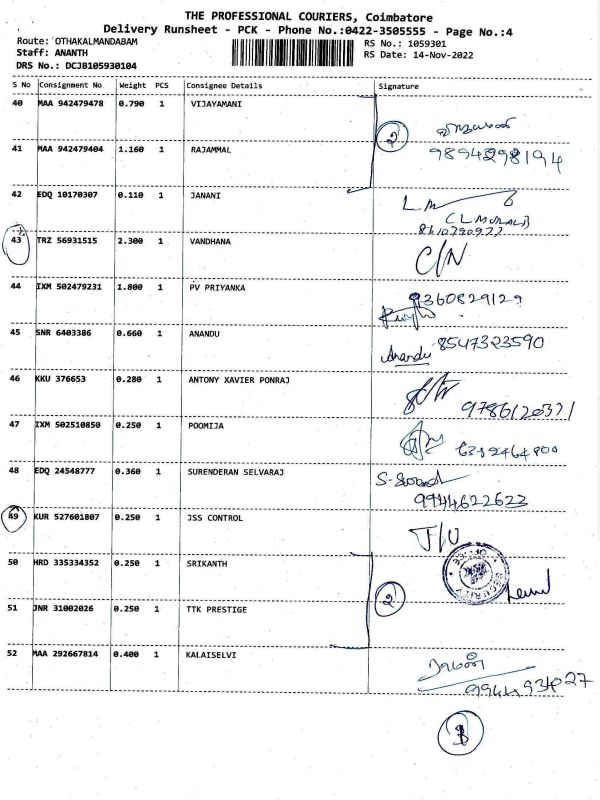 THE PROFESSIONAL COURIERS, Coimbatore
Delivery Runsheet - PCK - Phone No.:0422-3505555 - Page No.:4
Route: OTHAKALMANDABAM
RS No.: 1059301
Staff: ANANTH
RS Date: 14-Nov-2022
DRS No.: DCJB105930104
S No Consignment No Weight PCS Consignee Details Signature
40 MAA 942479478 0.790 1 VIJAYAMANI
2
41 MAA 942479404 1.160 1 RAJAMMAL 9894298194
42 EDQ 10170307 0.110 1 JANANI L M
(L MURALI)
43 TRZ 56931515 2.300 1 VANDHANA C/N
44 IXM 502479231 1.800 1 PV PRIYANKA 9360829129
45 SNR 6403386 0.660 1 ANANDU Anandu 8547323590
46 KKU 376653 0.280 1 ANTONY XAVIER PONRAJ
47 IXM 502510850 0.250 1 POOMIJA
48 EDQ 24548777 0.360 1 SURENDERAN SELVARAJ
9944622623
49 KUR 527601807 0.250 1 JSS CONTROL
50 HRD 335334352 0.250 1 SRIKANTH
SECURITY OFFICE
2
51 JNR 31002026 0.250 1 TTK PRESTIGE
52 MAA 292667814 0.400 1 KALAISELVI